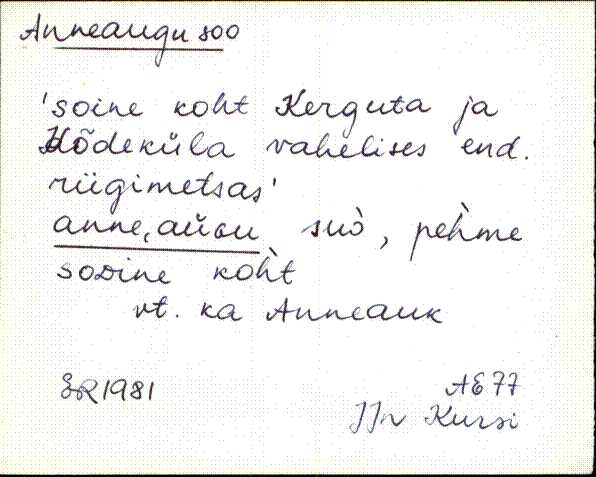 Anneaugu soo
'soine koht Kerguta ja
Hõdeküla vahelises end.
riigimetsas'
anne,aùɢu suò, peh̀me
sooine koh̀t
vt. ka Anneauk
ER 1981 AE 77
JJn Kursi